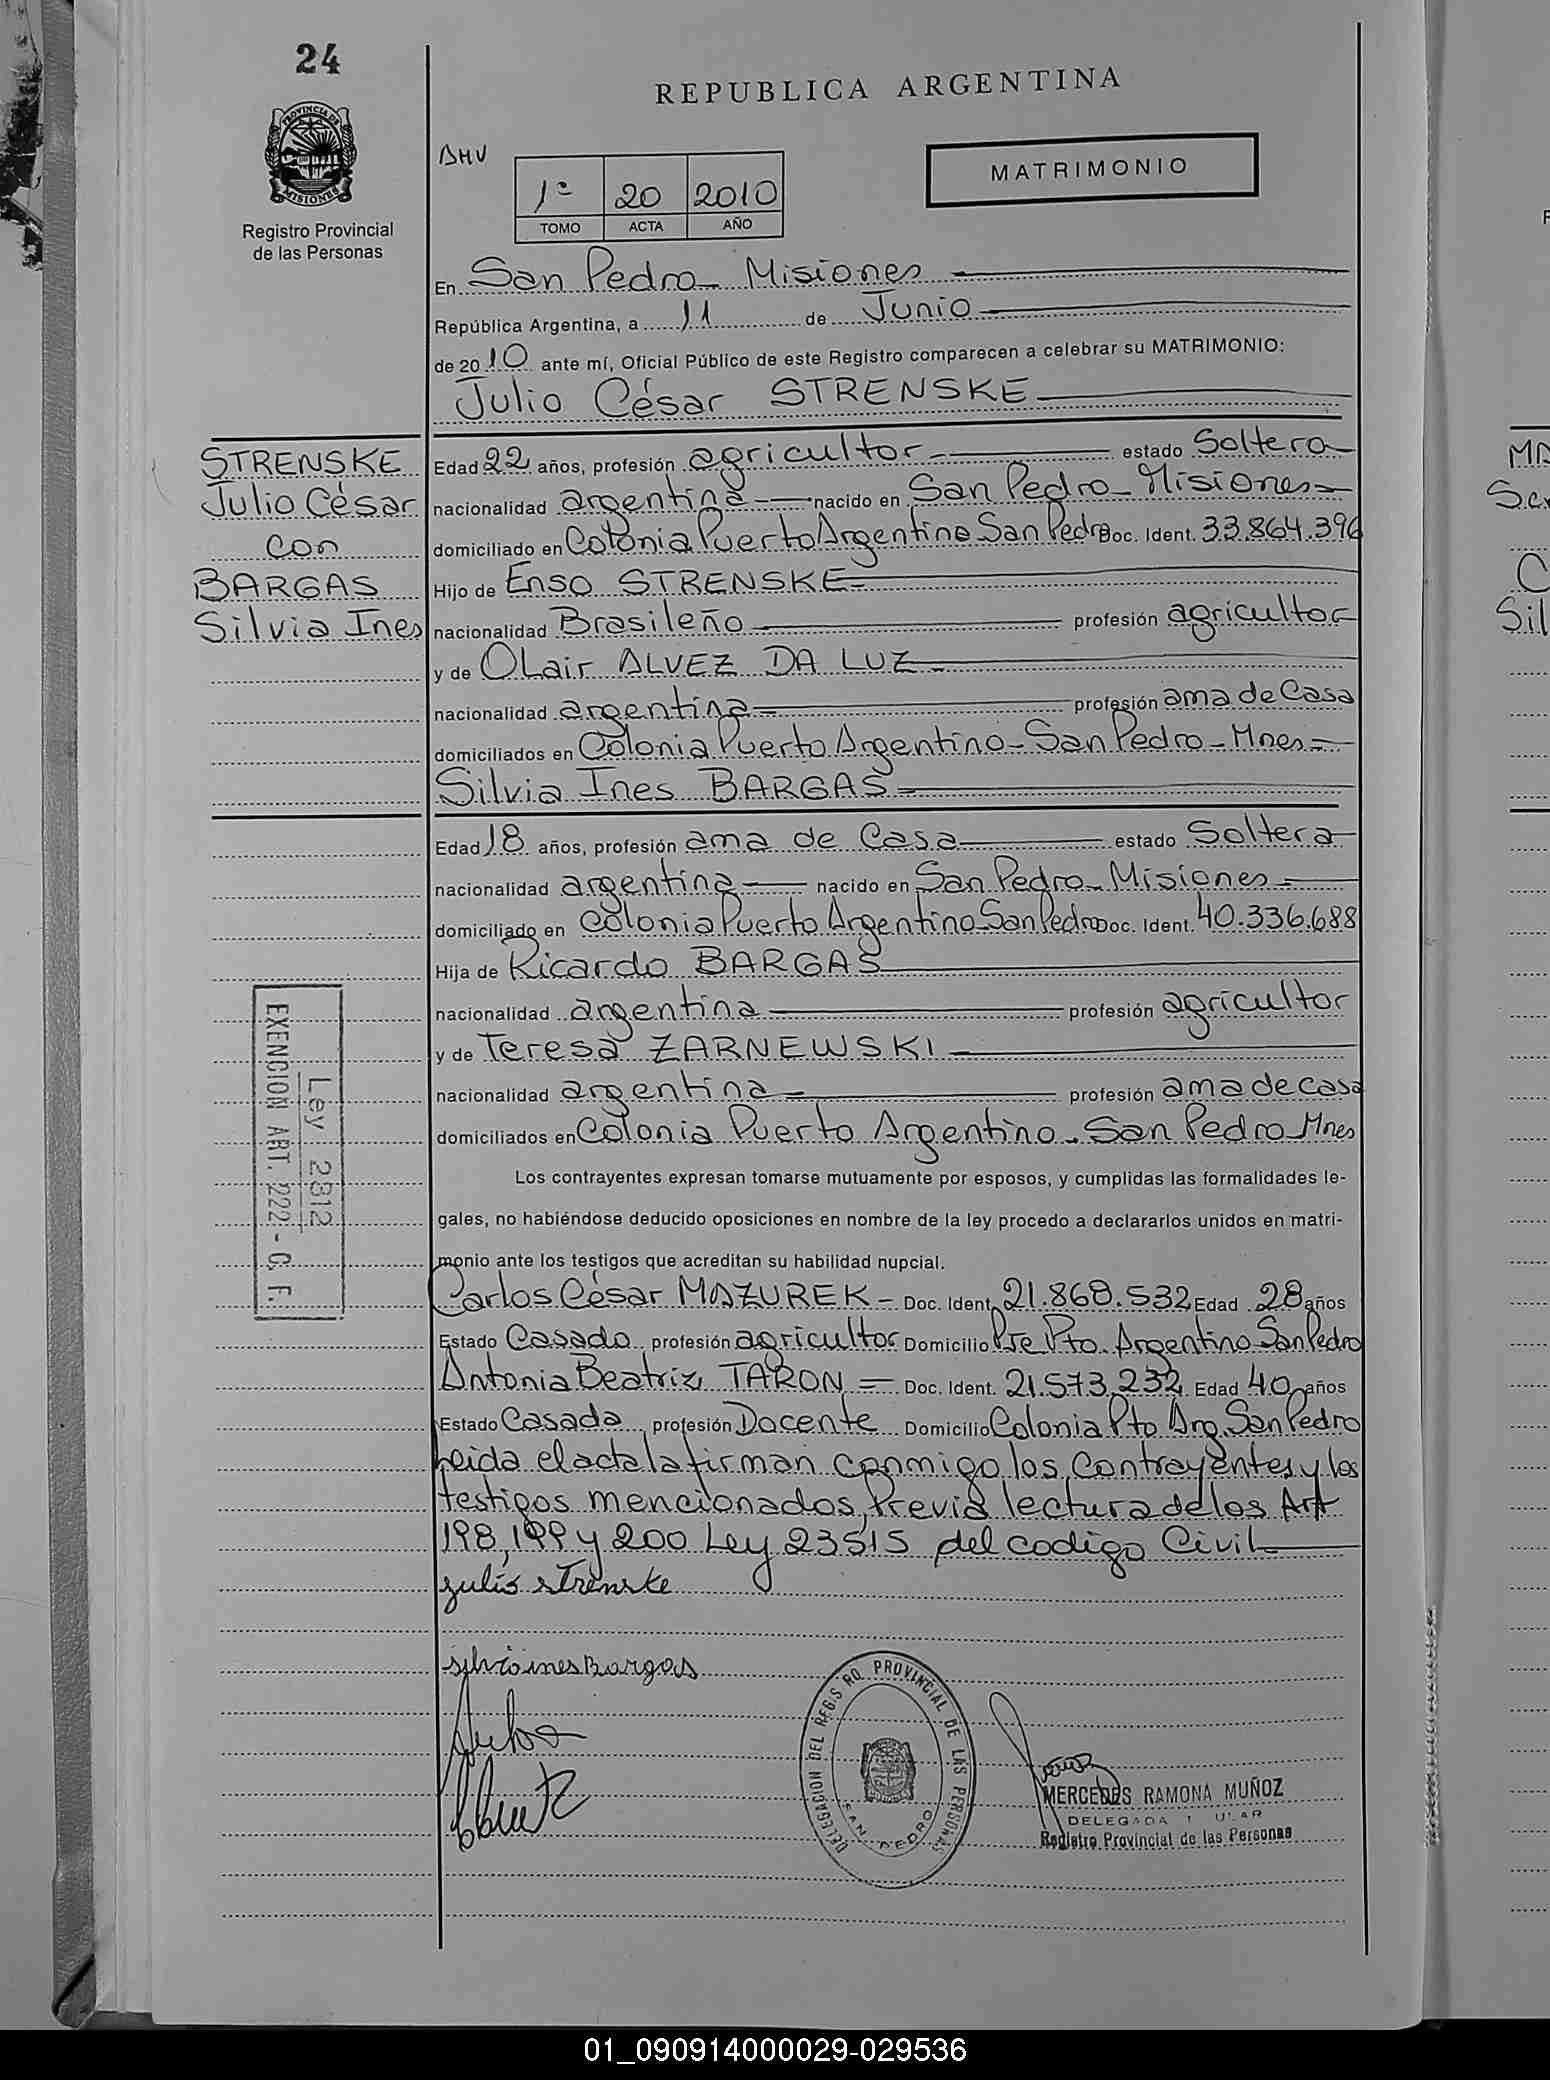 24
REPUBLICA ARGENTINA
PROVINCIA DE MISIONES
Registro Provincial
de las Personas
MATRIMONIO
1º 20 2010
TOMO ACTA AÑO
En San Pedro - Misiones
República Argentina, a 11 de Junio
de 2010 ante mí, Oficial Público de este Registro comparecen a celebrar su MATRIMONIO:
Julio César STRENSKE
STRENSKE
Julio César
con
BARGAS
Silvia Ines
Edad 22 años, profesión agricultor estado Soltero
nacionalidad argentina nacido en San Pedro - Misiones
domiciliado en Colonia Puerto Argentino San Pedro Doc. Ident. 33.864.396
Hijo de Enso STRENSKE
nacionalidad Brasileño profesión agricultor
y de OLair ALVEZ DA LUZ
nacionalidad argentina profesión ama de Casa
domiciliados en Colonia Puerto Argentino - San Pedro - Mnes
Silvia Ines BARGAS
Edad 18 años, profesión ama de Casa estado Soltera
nacionalidad argentina nacido en San Pedro - Misiones
domiciliado en Colonia Puerto Argentino - San Pedro Doc. Ident. 40.336.688
Hija de Ricardo BARGAS
nacionalidad argentina profesión agricultor
y de Teresa ZARNEWSKI
nacionalidad argentina profesión ama de casa
domiciliados en Colonia Puerto Argentino - San Pedro - Mnes
Ley 2812
EXENCION ART. 222 - C. F.
Los contrayentes expresan tomarse mutuamente por esposos, y cumplidas las formalidades le-
gales, no habiéndose deducido oposiciones en nombre de la ley procedo a declararlos unidos en matri-
monio ante los testigos que acreditan su habilidad nupcial.
Carlos César MAZUREK - Doc. Ident. 21.868.532 Edad 28 años
Estado Casado profesión agricultor Domicilio Pje Pto. Argentino San Pedro
Antonia Beatriz TARON = Doc. Ident. 21.573.232 Edad 40 años
Estado Casada profesión Docente Domicilio Colonia Pto Arg. San Pedro
Leida el acta la firman conmigo los Contrayentes y los
testigos mencionados, Previa lectura de los Art
198, 199 y 200 Ley 23515 del codigo Civil
julio strenske
silvia ines Bargas
DELEGACION DEL REGISRO PROVINCIAL DE LAS PERSONAS
SAN PEDRO
MERCEDES RAMONA MUÑOZ
DELEGADA
Registro Provincial de las Personas
01_090914000029-029536